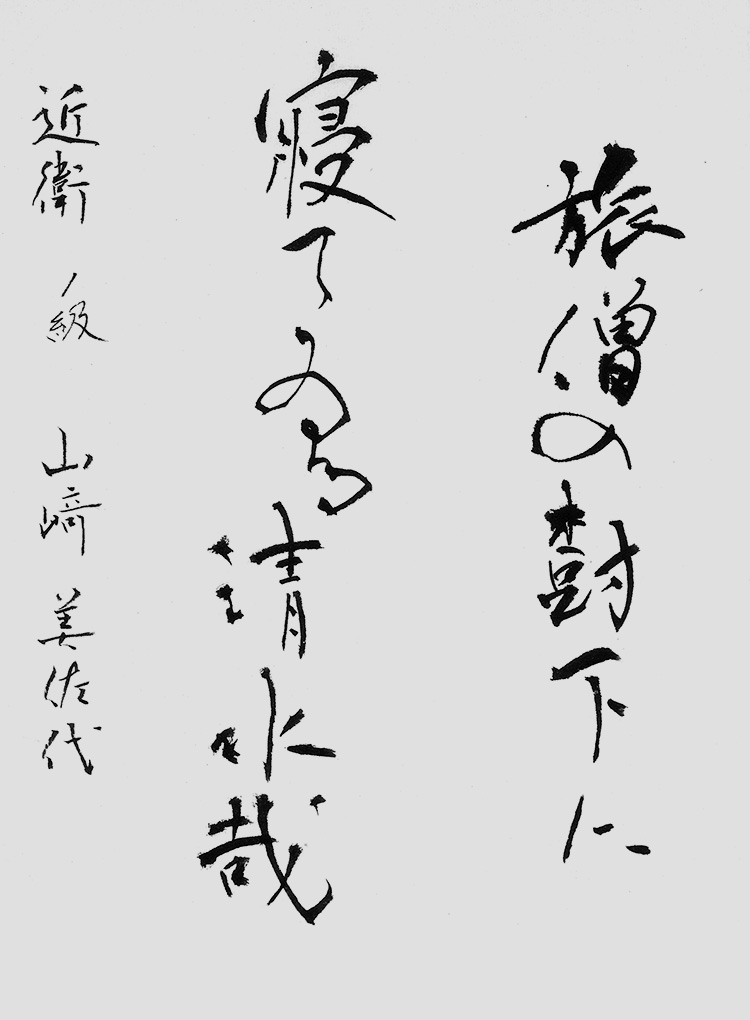 旅僧の樹下に
寝てゐる清水哉
近衛 1級 山﨑 美佐代